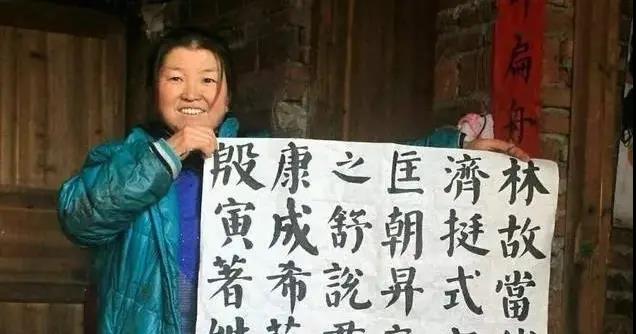 扁舟
林故當
濟挺式
匡朝昇
之舒說
康成希
殷寅著